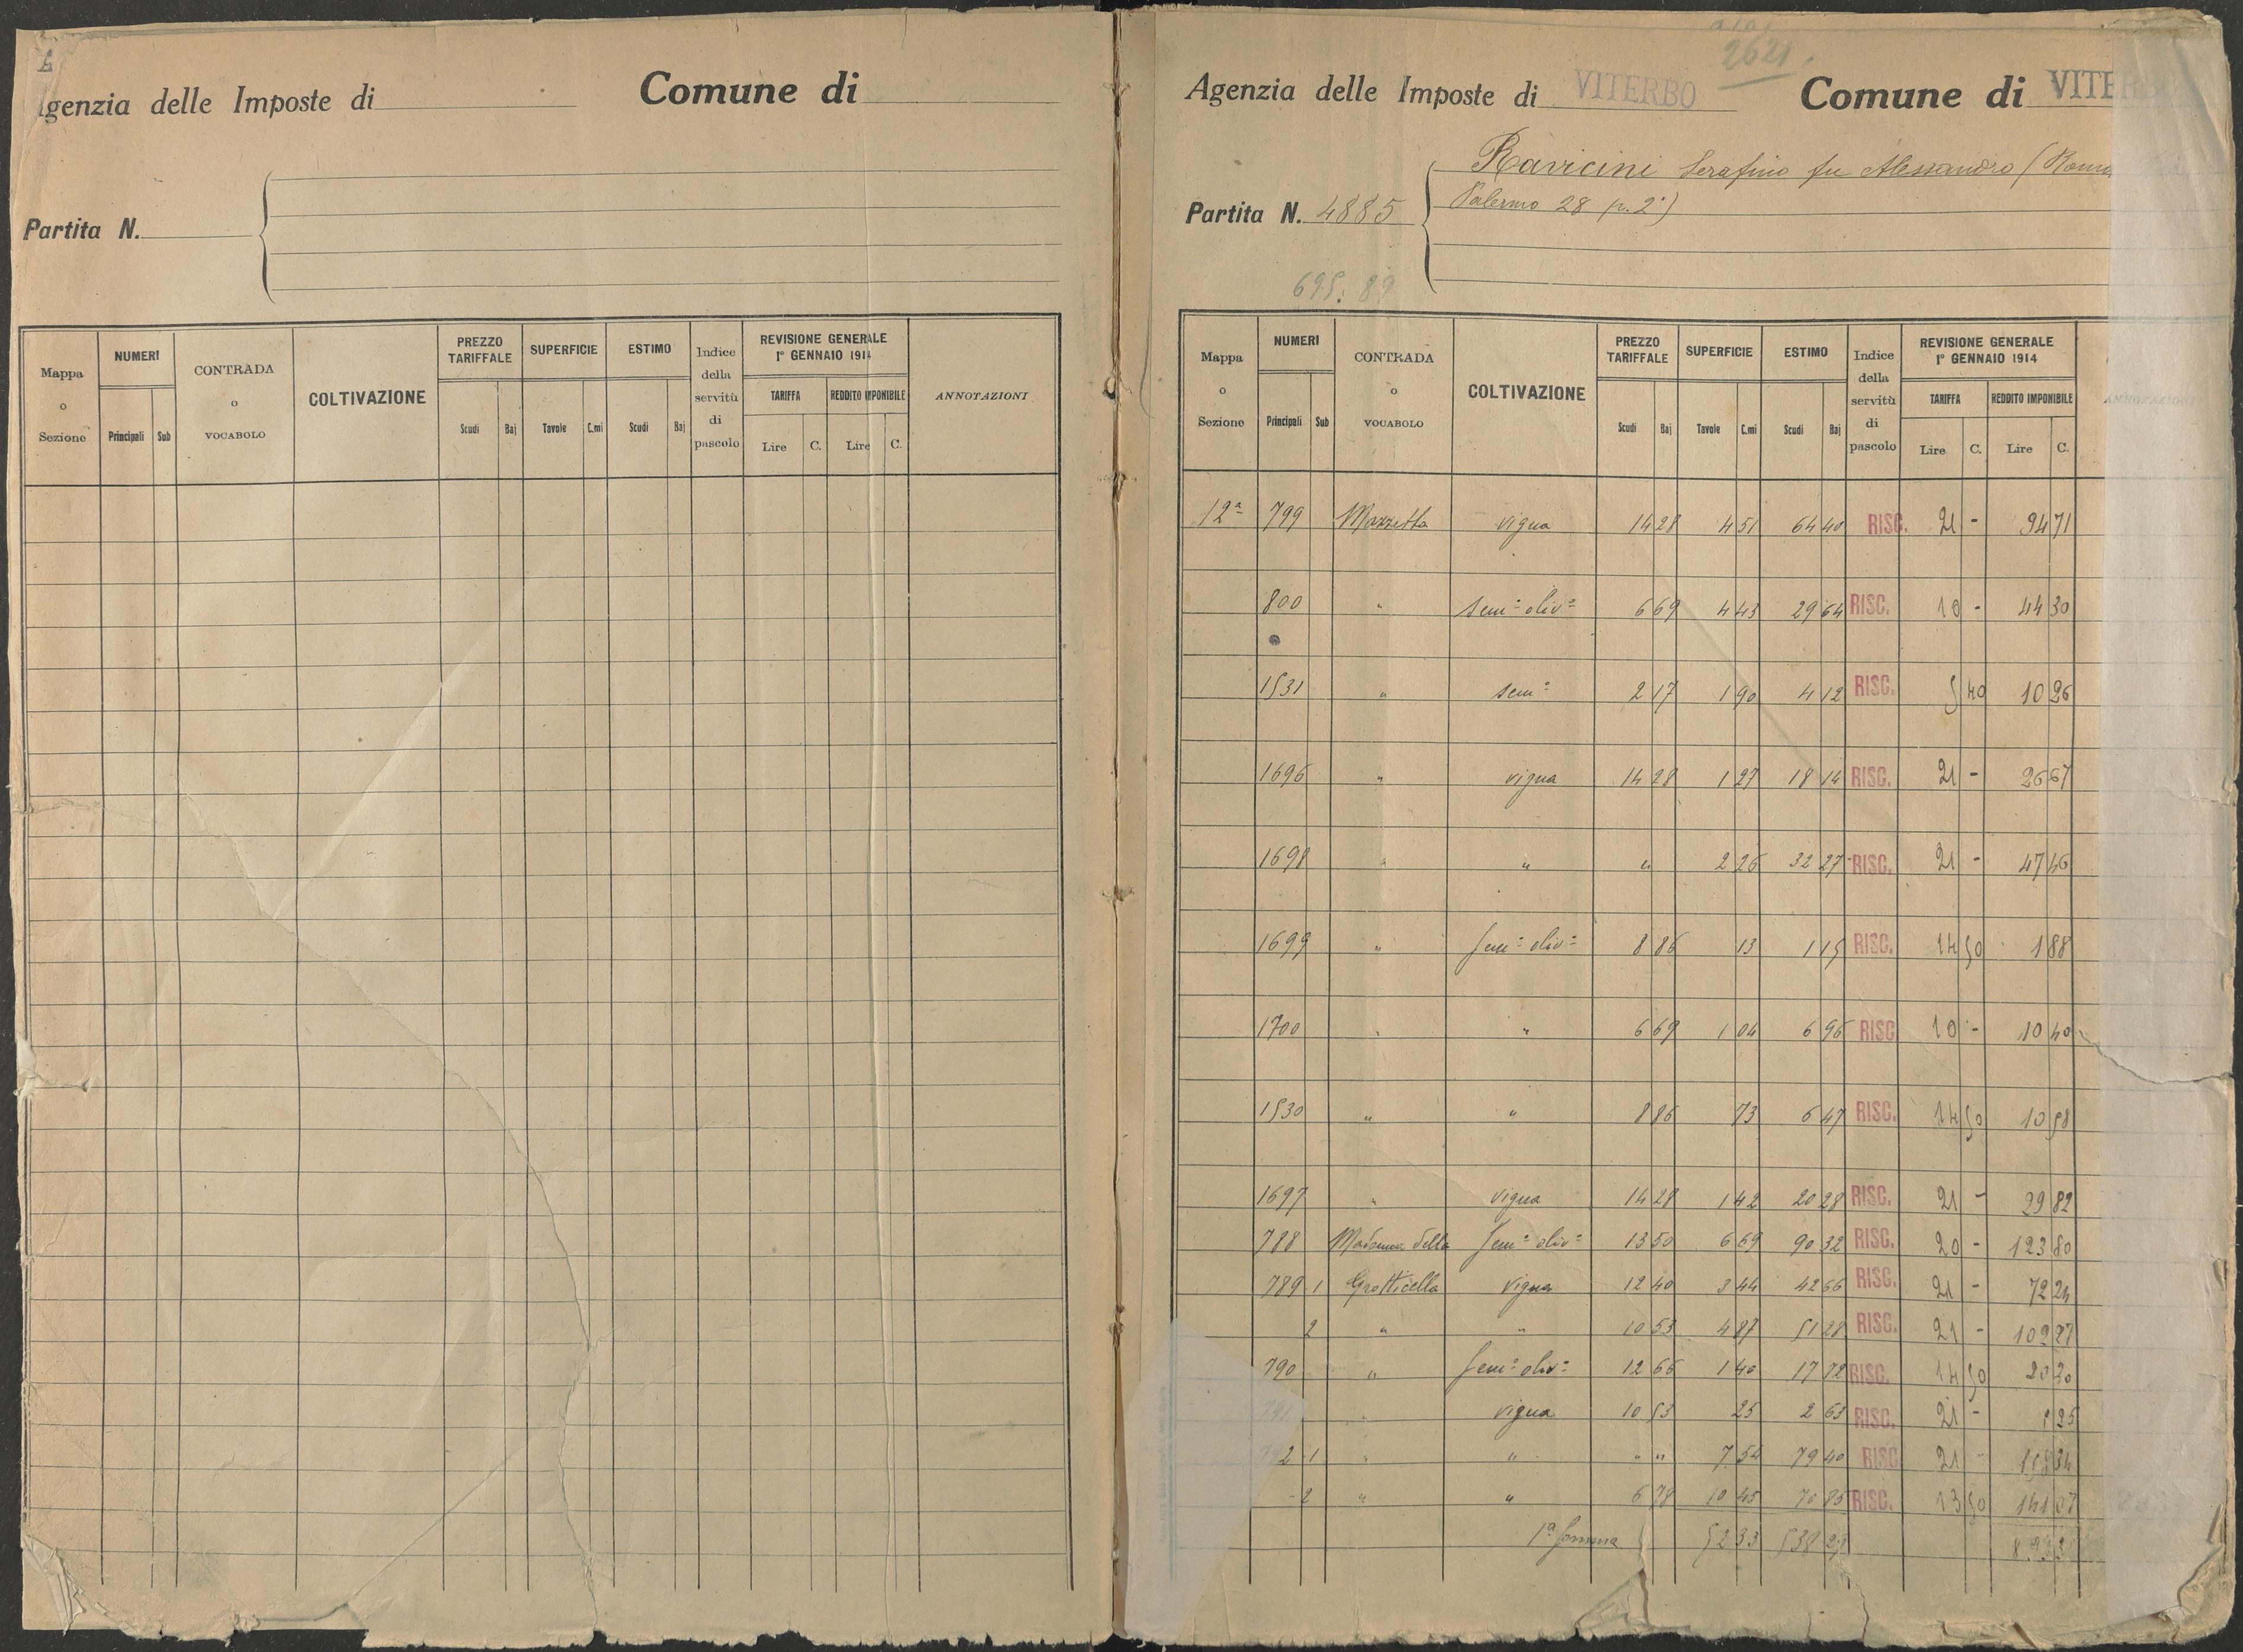 Agenzia delle Imposte di Comune di
Partita N.
Mappa o Sezione NUMERI Principali Sub CONTRADA o VOCABOLO COLTIVAZIONE PREZZO TARIFFALE Scudi Baj SUPERFICIE Tavole C.mi ESTIMO Scudi Baj Indice della servitù di pascolo REVISIONE GENERALE 1° GENNAIO 1914 TARIFFA Lire C. REDDITO IMPONIBILE Lire C. ANNOTAZIONI
2621.
Agenzia delle Imposte di VITERBO Comune di VITERBO
Ravicini Serafino fu Alessandro (Roma
Partita N. 4885 Palermo 28 p. 2°)
695. 89
Mappa o Sezione NUMERI Principali Sub CONTRADA o VOCABOLO COLTIVAZIONE PREZZO TARIFFALE Scudi Baj SUPERFICIE Tavole C.mi ESTIMO Scudi Baj Indice della servitù di pascolo REVISIONE GENERALE 1° GENNAIO 1914 TARIFFA Lire C. REDDITO IMPONIBILE Lire C. ANNOTAZIONI
12ª 799 Mazzetta vigna 14 28 4 51 64 40 RISC. 21 - 94 71
800 " sem° oliv° 6 69 4 43 29 64 RISC. 10 - 44 30
1531 " sem° 2 17 1 90 4 12 RISC. 5 40 10 26
1696 " vigna 14 28 1 27 18 14 RISC. 21 - 26 67
1698 " " " 2 26 32 27 RISC. 21 - 47 46
1699 " sem° oliv° 8 86 13 1 15 RISC. 14 50 1 88
1700 " " 6 69 1 04 6 96 RISC. 10 - 10 40
1530 " " 8 86 73 6 47 RISC. 14 50 10 58
1697 " vigna 14 28 1 42 20 28 RISC. 21 - 29 82
788 Madonna della sem° oliv° 13 50 6 69 90 32 RISC. 20 - 123 80
789 1 Grotticella vigna 12 40 3 44 42 66 RISC. 21 - 72 24
2 " " 10 53 4 87 51 28 RISC. 21 - 102 27
790 " sem° oliv° 12 66 1 40 17 72 RISC. 14 50 20 30
791 " vigna 10 53 25 2 63 RISC. 21 - 5 25
792 1 " " " " 7 54 79 40 RISC. 21 - 158 34
- 2 " " 6 78 10 45 70 85 RISC. 13 50 141 07
1ª Somma 52 33 538 29